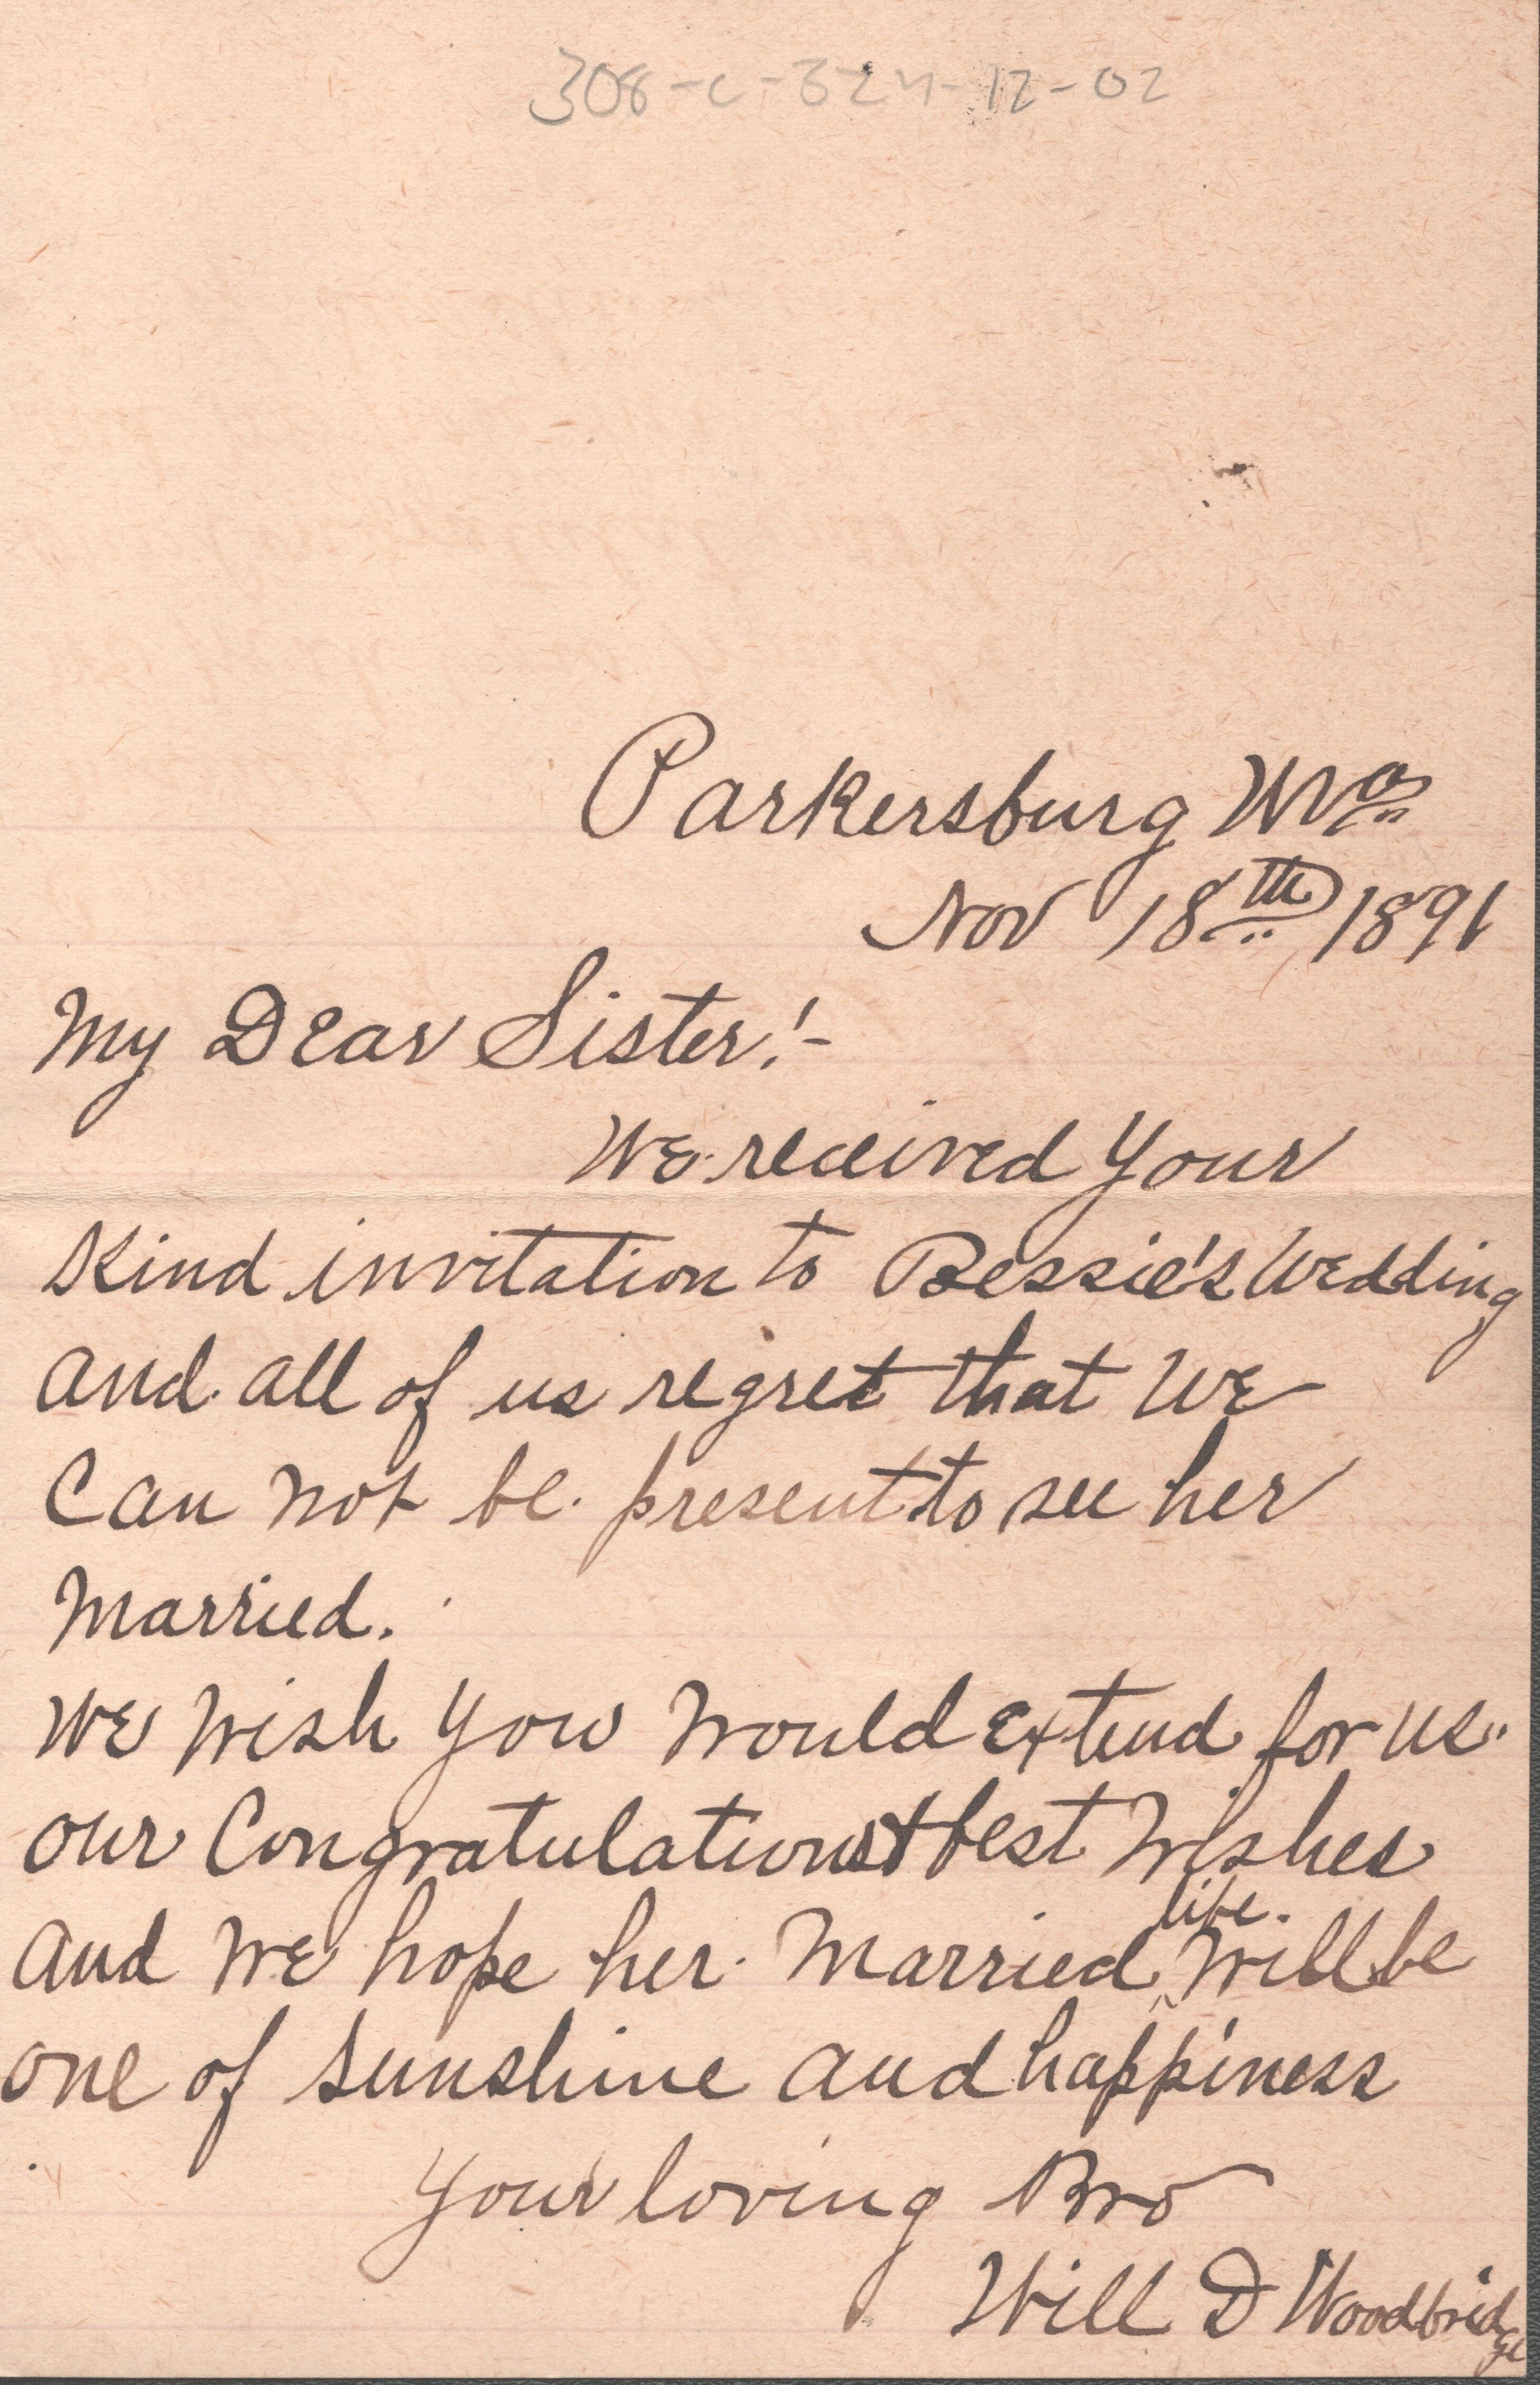 308-C-324-12-02
Parkersburg Wva
Nov 18th 1891
My Dear Sister!-
We received your
Kind invitation to Bessie's Wedding
and all of us regret that We
Can not be present to see her
Married.
We Wish you Would Extend for us
our Congratulations & best Wishes
and We hope her Married life Will be
one of sunshine and happiness
Your loving Bro
Will D Woodbridge